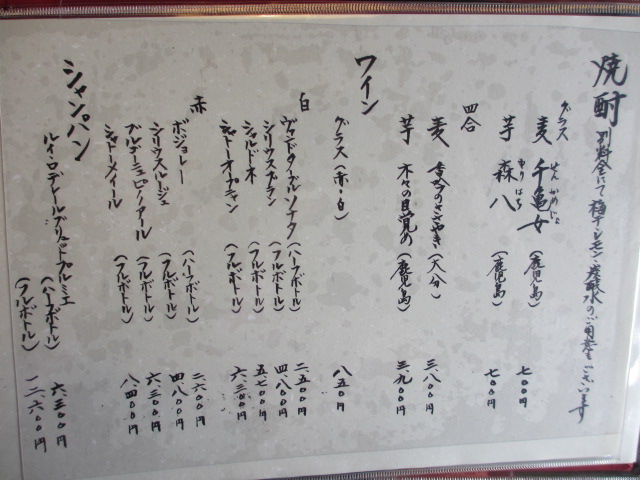 焼酎 別料金にて梅干・レモン・炭酸水のご用意ございます
グラス
麦 千亀女 せんかめじょ (鹿児島) 七〇〇円
芋 森八 もりはち (鹿児島) 七〇〇円
四合
麦 杏多のささやき (大分) 三、八〇〇円
芋 木々の目覚め (鹿児島) 三、九〇〇円
ワイン
グラス (赤・白) 八五〇円
白
ヴァンドターブルソナタ (ハーフボトル) 二、五〇〇円
シリウスブラン (フルボトル) 四、八〇〇円
シャルドネ (フルボトル) 五、七〇〇円
シャトーオーブキャン (フルボトル) 六、三〇〇円
赤
ボジョレー (ハーフボトル) 二、六〇〇円
シリウスルージュ (フルボトル) 四、八〇〇円
ブルゴーニュピノノアール (フルボトル) 六、三〇〇円
シャトーメイール (フルボトル) 八、四〇〇円
シャンパン
ルイ・ロデレールブリュットプルミエ
(ハーフボトル) 六、三〇〇円
(フルボトル) 一二、六〇〇円